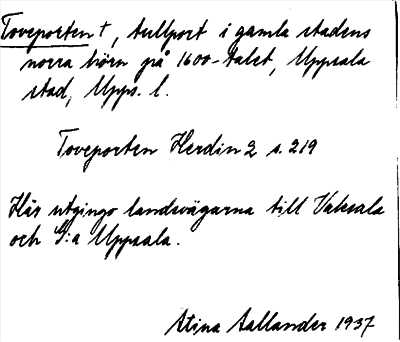 Toveporten †, tullport i gamla stadens
norra hörn på 1600-talet, Uppsala
stad, Upps. l.
Toveporten Herdin 2 s. 219
Här utgingo landsvägarna till Vaksala
och G:a Uppsala.
Stina Aallander 1937